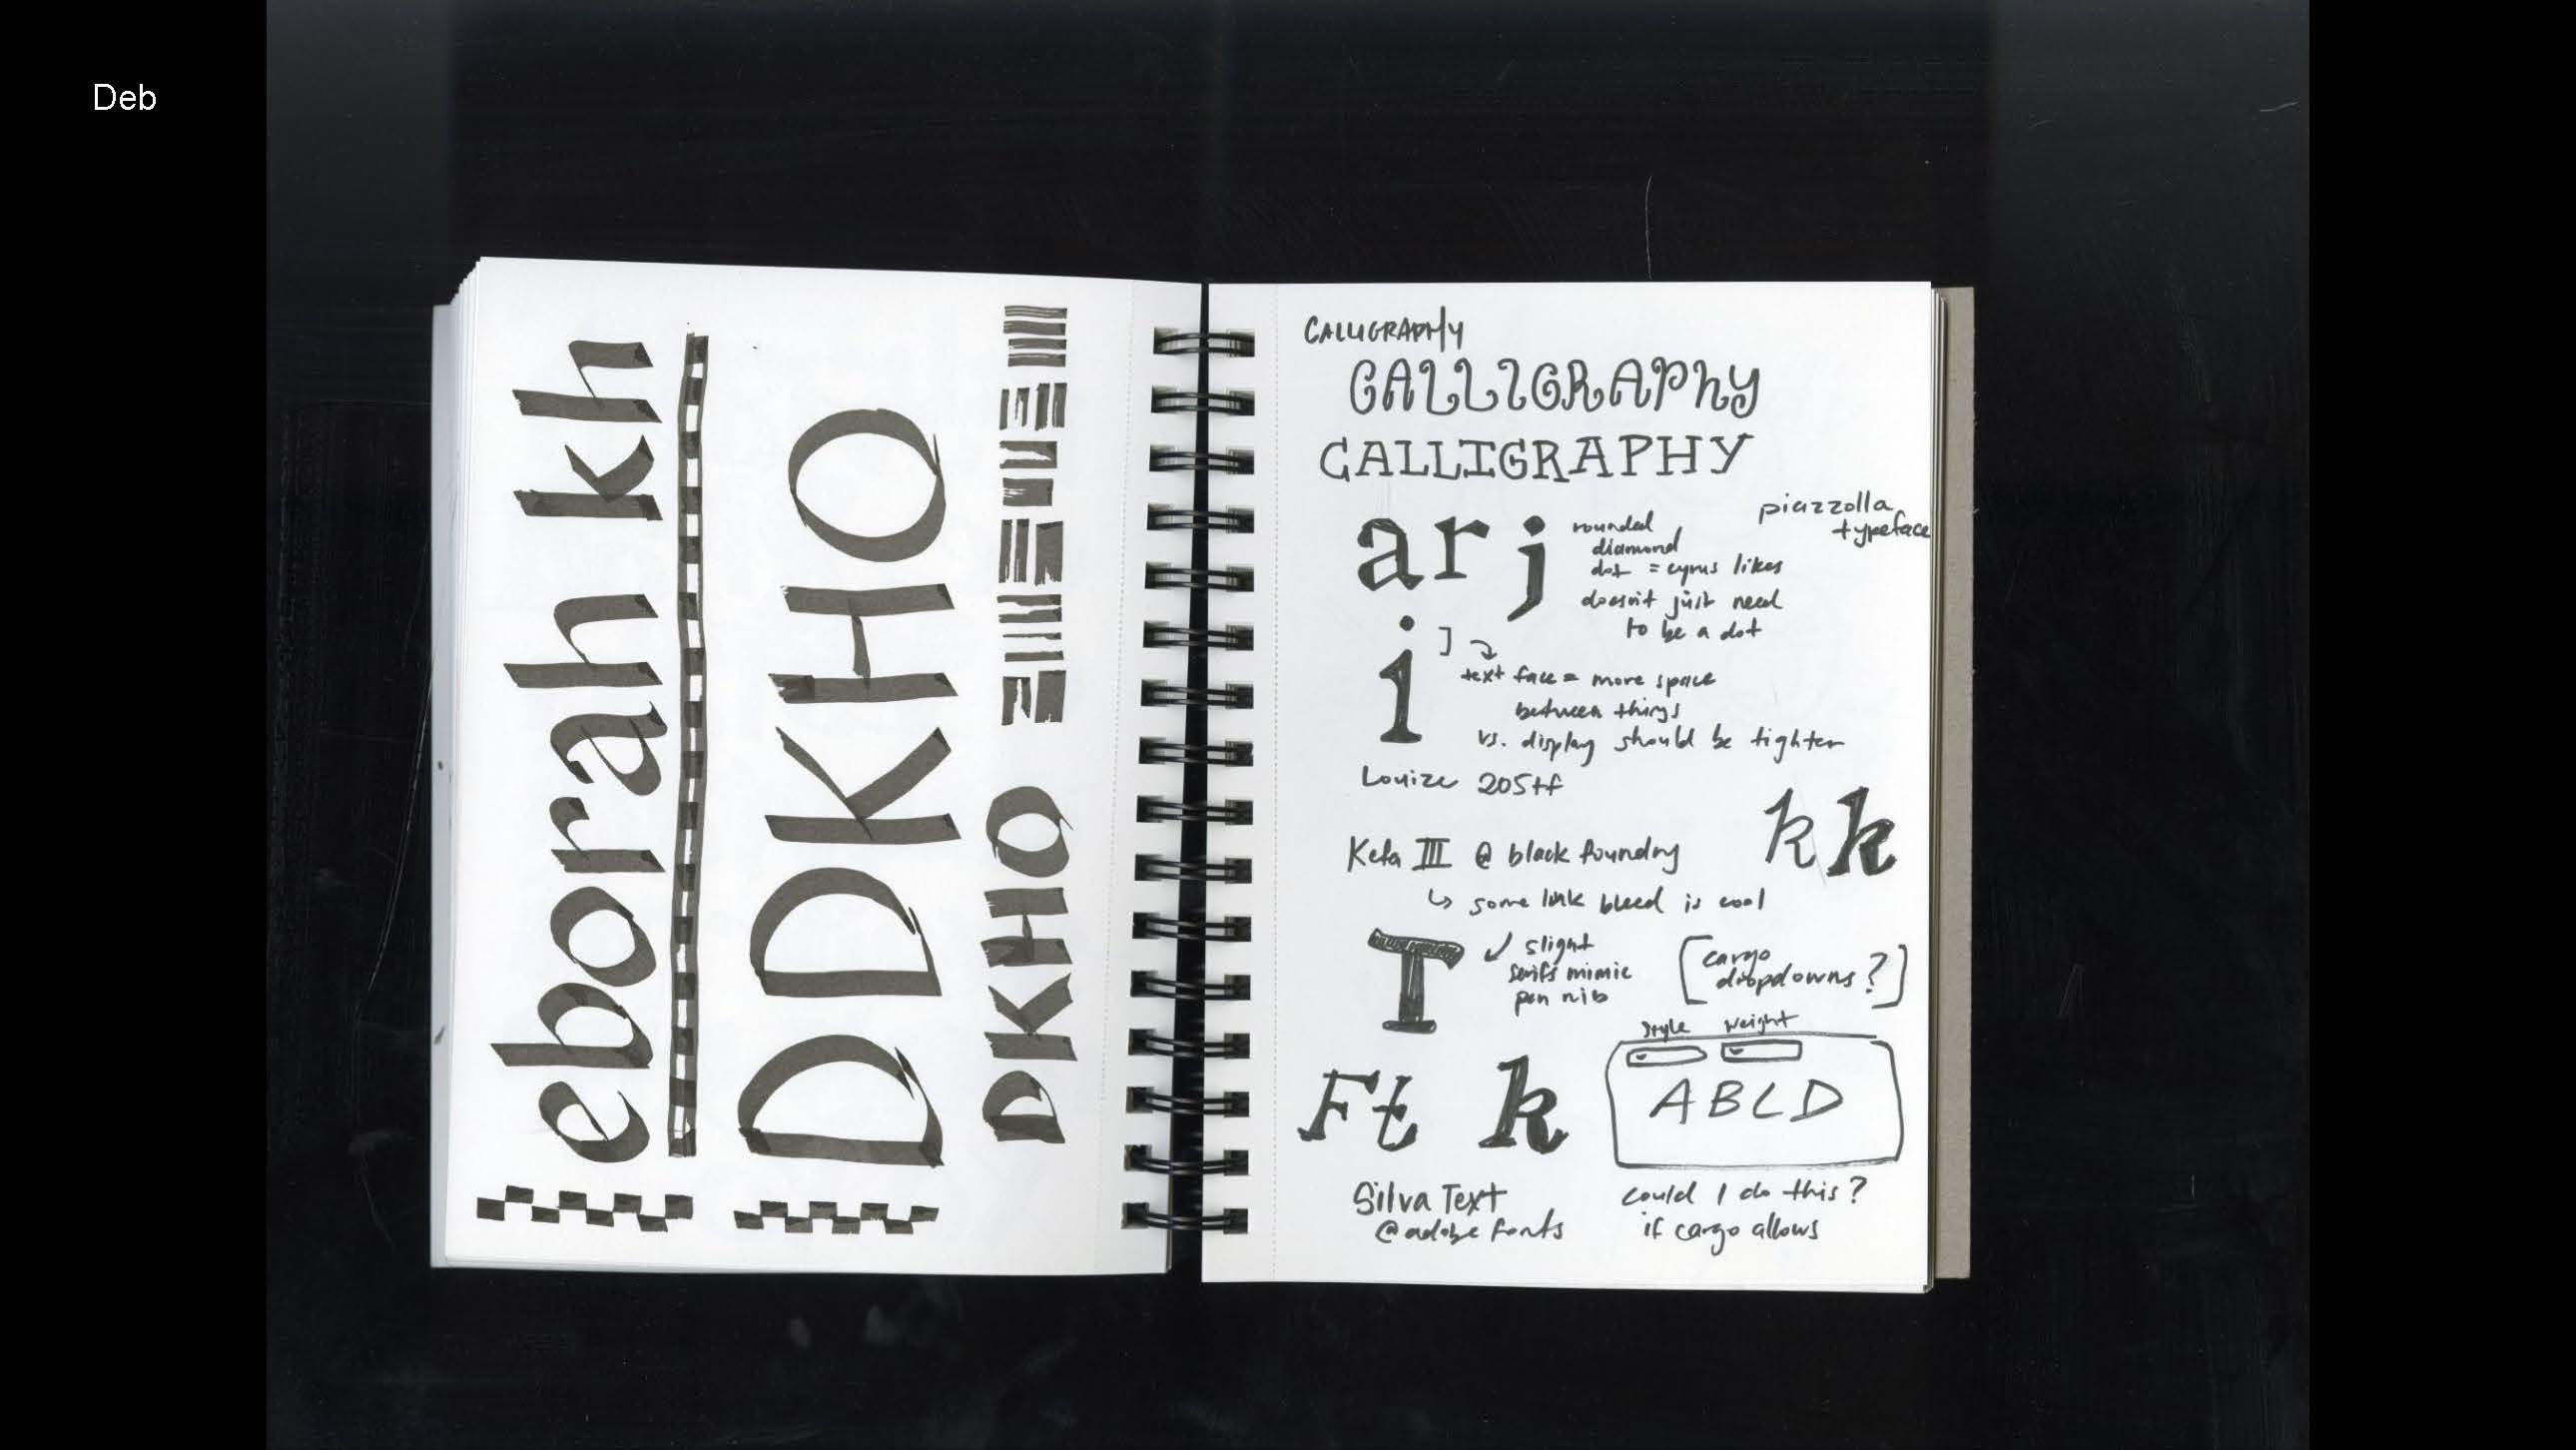 Deb
eborah kh
DDKHO
DKHO
CALLIGRAPHY
CALLIGRAPhy
CALLIGRAPHY
piazzolla
typeface
a r j
rounded
diamond
dot = cyrus likes
doesn't just need
to be a dot
i
text face = more space
between things
vs. display should be tighter
Louize 205tf
k k
Kefa III @ black foundry
↳ some ink bleed is cool
T
slight
serifs mimic
pen nib
[cargo
dropdowns?]
Style Weight
ABCD
Ft k
Silva Text
@adobe fonts
could I do this?
if cargo allows